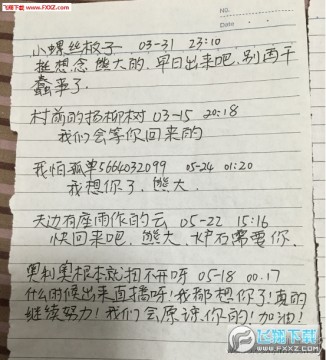 飞翔下载
WWW.FXXZ.COM
NO.
Date
小螺丝板子 03-31 23:10
挺想念熊大的,早日出来吧,别再干
蠢事了.
村前的杨柳树 03-15 20:18
我们会等你回来的
我怕孤单5664032099 05-24 01:20
我想你了,熊大.
天边有座雨作的云 05-22 15:16
快回来吧,熊大,炉石需要你.
奥利奥根本就扭不开呀 05-18 00.17
什么时候出来直播呀!我都想你了!真的
继续努力!我们会原谅你的!加油!
飞翔下载
WWW.FXXZ.COM